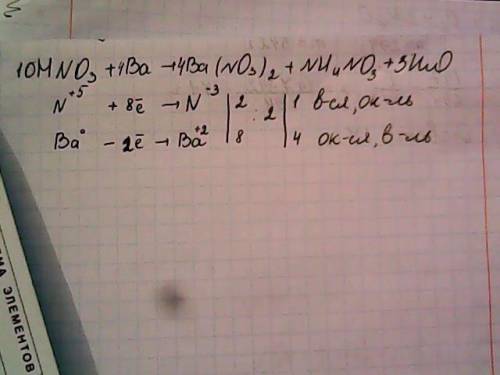 10HNO₃ +4Ba →4Ba(NO₃)₂ + NH₄NO₃ +3H₂O
N⁺⁵ + 8ē → N⁻³ | 2 : 2 | 1 в-сл, ок-ль
Ba⁰ - 2ē → Ba⁺² | 8 | 4 ок-сл, в-ль
ЭЛЕМЕНТОВ